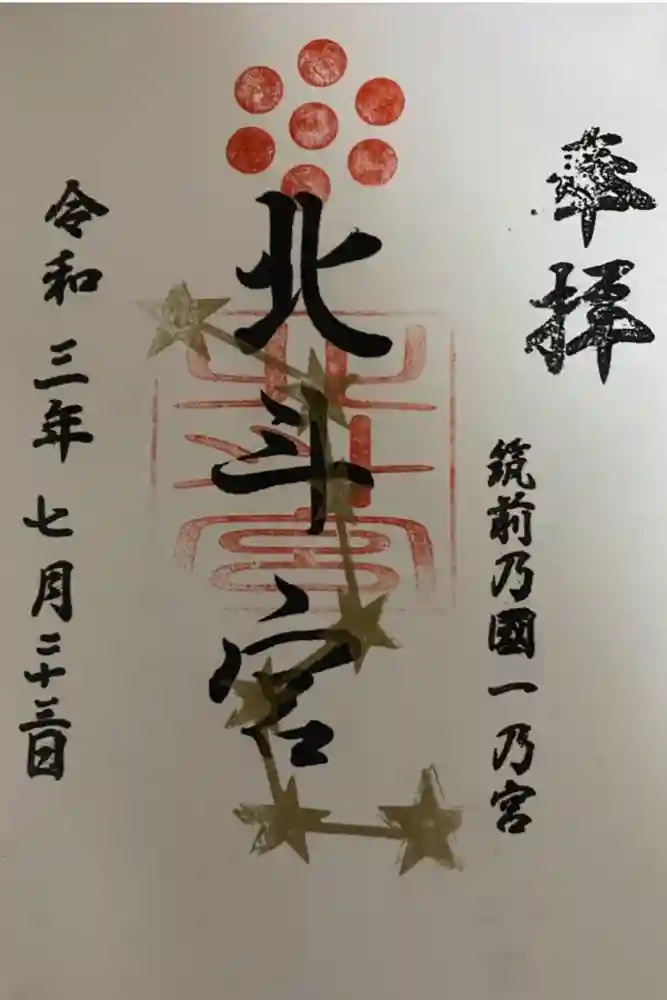 奉拝
筑前乃國一乃宮
北斗宮
北斗宮
令和三年七月二十三日